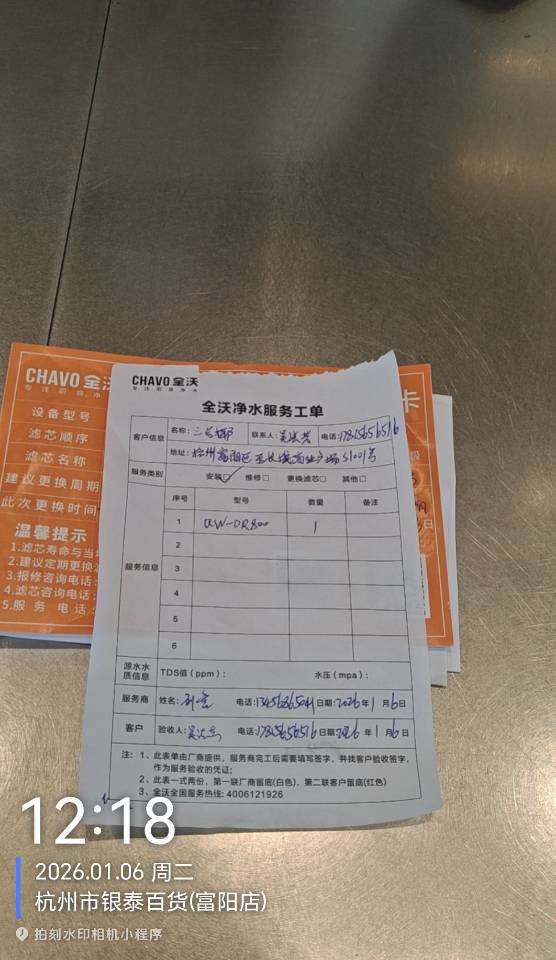 CHAVO 全沃
设备型号
滤芯顺序
滤芯名称
建议更换周期
此次更换时间
温馨提示
1.滤芯寿命与当
2.建议定期更换
3.报修咨询电话:
4.滤芯咨询电话:
5.服 务 电话:
卡
CHAVO 全沃
专注厨房净水
全沃净水服务工单
客户信息 名称: 联系人: 电话:
地址: 杭州富阳区
服务类别 安装☑ 维修□ 更换滤芯□ 其他□
服务信息
序号 型号 数量 备注
1 QW-DR800 1
2
3
4
5
6
源水水质信息 TDS值(ppm): 水压(mpa):
服务商 姓名: 电话: 日期:2026年1月6日
客户 验收人: 电话: 日期:2026年1月6日
注: 1、此表单由厂商提供,服务商完工后需要填写签字,并找客户验收签字,
作为服务验收的凭证;
2、此表一式两份,第一联厂商留底(白色),第二联客户留底(红色)
3、全沃全国服务热线: 4006121926
12:18
2026.01.06 周二
杭州市银泰百货(富阳店)
拍刻水印相机小程序